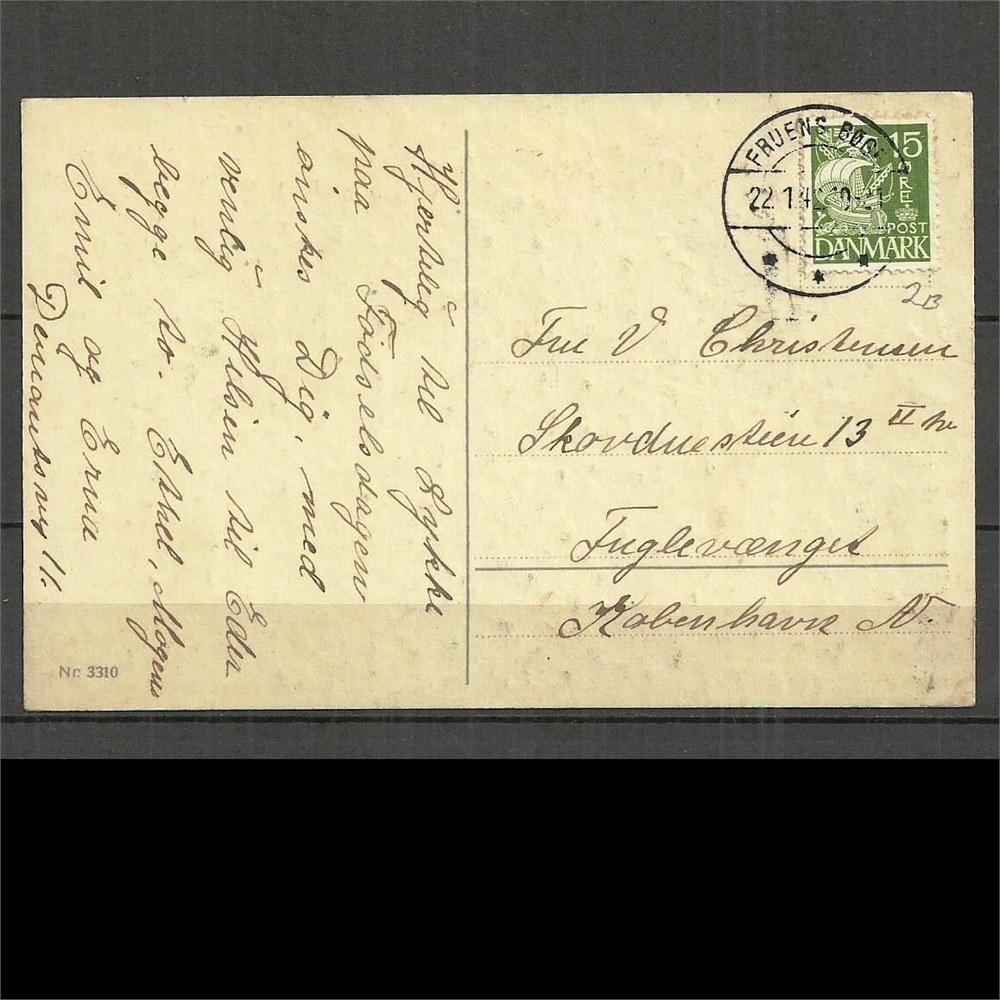 Hjertelig til Lykke
paa Fødselsdagen
ønskes Dig, med
venlig Hilsen til Eder
begge to. Ethel, Mogens
Emil og Erna
11.
Nr. 3310
FRUENS BØGE
22.1.4
15
ØRE
POST
DANMARK
2B
Fru V Christensen
13 II
Fuglevænget
København N.